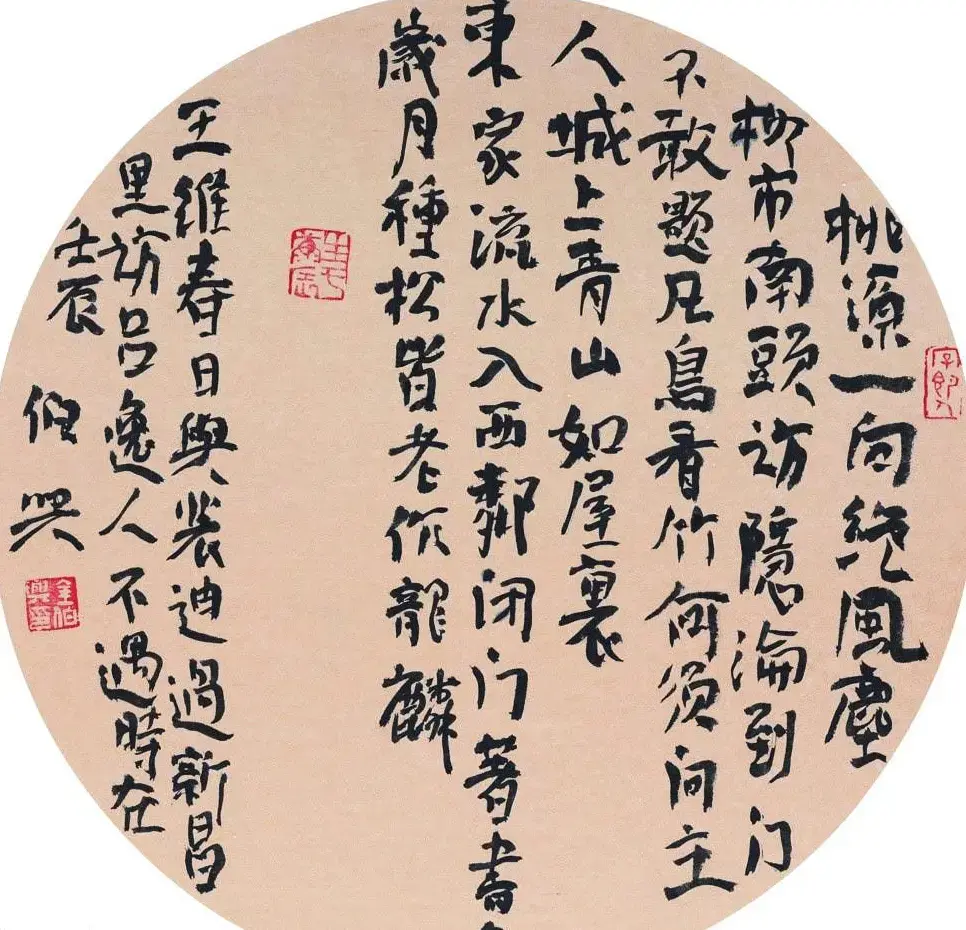 桃源一向絕風塵
柳市南頭访隱淪到门
不敢題凡鳥看竹何須问主
人城上青山如屋裏
東家流水入西鄰闭门著書
歲月種松皆老作龍麟
王維春日與裴迪過新昌
里访吕逸人不遇時在
壬辰 伯兴